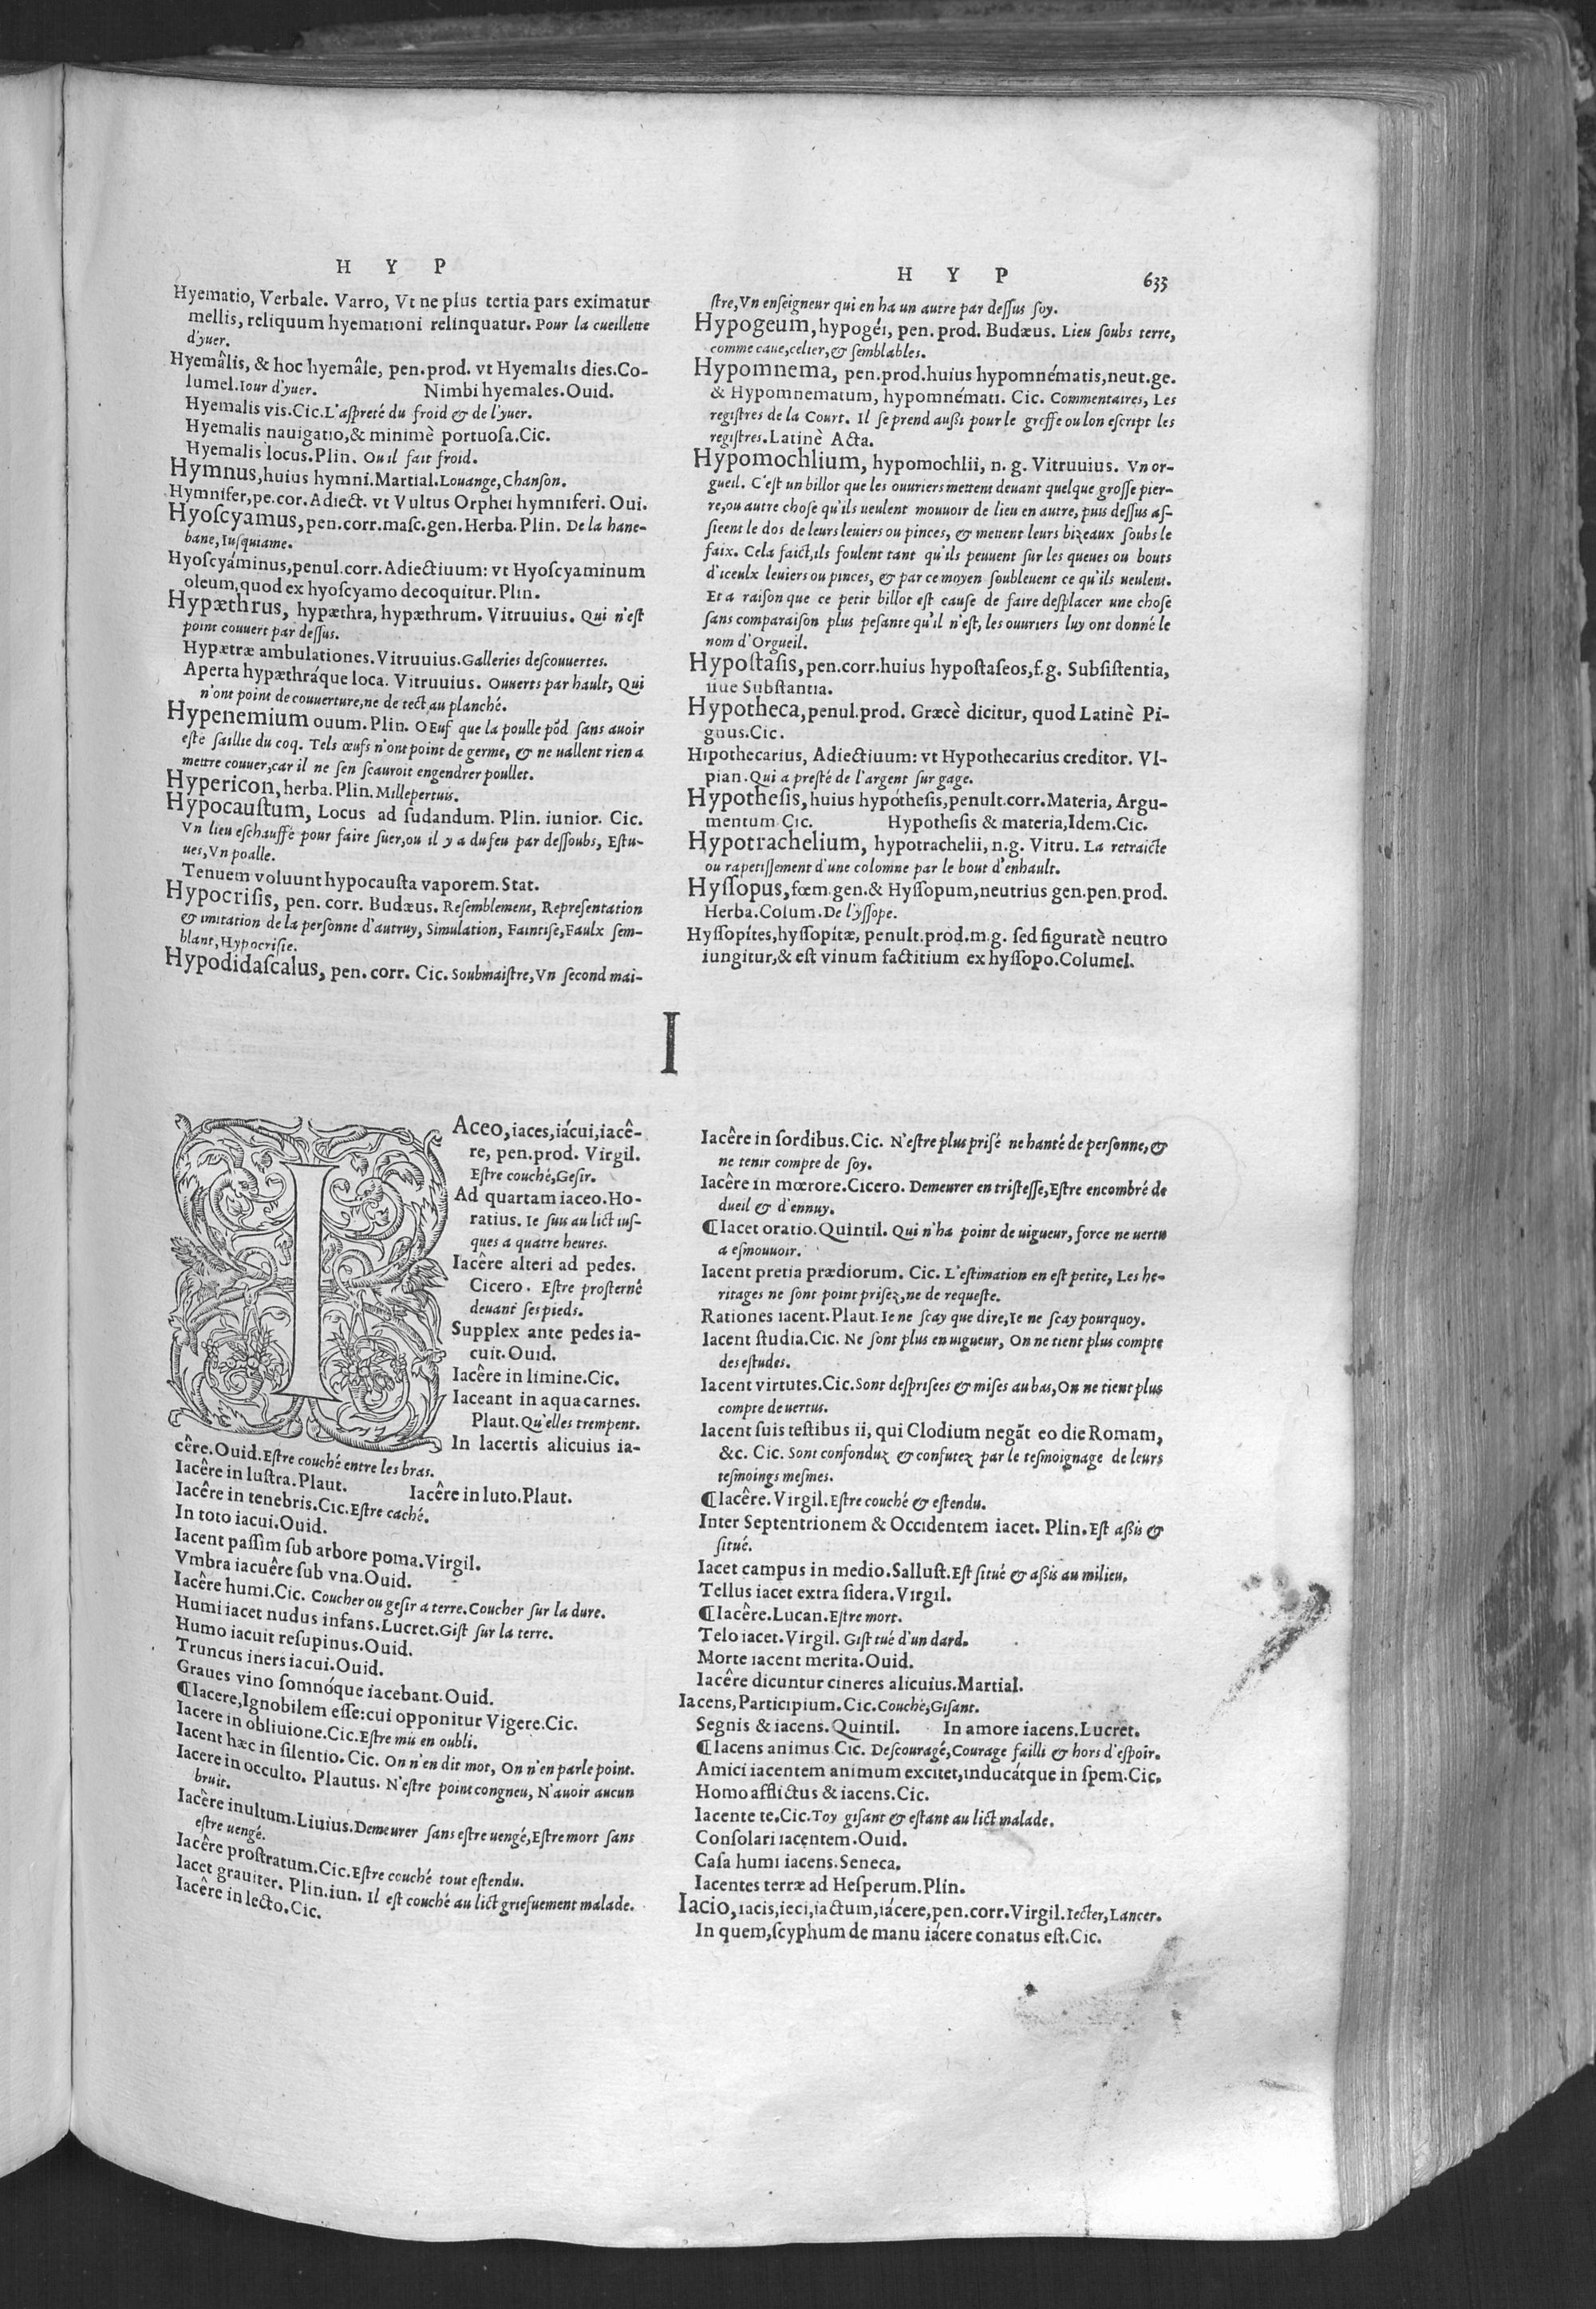 H Y P
Hyematio, Verbale. Varro, Vt ne plus tertia pars eximatur
mellis, reliquum hyemationi relinquatur. Pour la cueillette
d'yuer.
Hyemâlis, & hoc hyemâle, pen. prod. vt Hyemalis dies. Co-
lumel. Iour d'yuer. Nimbi hyemales. Ouid.
Hyemalis vis. Cic. L'aſpreté du froid & de l'yuer.
Hyemalis nauigatio, & minimè portuoſa. Cic.
Hyemalis locus. Plin. Ou il fait froid.
Hymnus, huius hymni. Martial. Louange, Chanſon.
Hymnifer, pe. cor. Adiect. vt Vultus Orphei hymniferi. Oui.
Hyoſcyamus, pen. corr. maſc. gen. Herba. Plin. De la hane-
bane, Iuſquiame.
Hyoſcyáminus, penul. corr. Adiectiuum: vt Hyoſcyaminum
oleum, quod ex hyoſcyamo decoquitur. Plin.
Hypæthrus, hypæthra, hypæthrum. Vitruuius. Qui n'eſt
point couuert par deſſus.
Hypætræ ambulationes. Vitruuius. Galleries deſcouuertes.
Aperta hypæthráque loca. Vitruuius. Ouuerts par hault, Qui
n'ont point de couuerture, ne de tect au planché.
Hypenemium ouum. Plin. OEuf que la poulle põd ſans auoir
eſté ſaillie du coq. Tels œufs n'ont point de germe, & ne uallent rien a
mettre couuer, car il ne ſen ſcauroit engendrer poullet.
Hypericon, herba. Plin. Millepertuis.
Hypocauſtum, Locus ad ſudandum. Plin. iunior. Cic.
Vn lieu eſchauffé pour faire ſuer, ou il y a du feu par deſſoubs, Eſtu-
ues, Vn poalle.
Tenuem voluunt hypocauſta vaporem. Stat.
Hypocriſis, pen. corr. Budæus. Reſemblement, Repreſentation
& imitation de la perſonne d'autruy, Simulation, Faintiſe, Faulx ſem-
blant, Hypocriſie.
Hypodidaſcalus, pen. corr. Cic. Soubmaiſtre, Vn ſecond mai-
H Y P 633
ſtre, Vn enſeigneur qui en ha un autre par deſſus ſoy.
Hypogeum, hypogéi, pen. prod. Budæus. Lieu ſoubs terre,
comme caue, celier, & ſemblables.
Hypomnema, pen. prod. huius hypomnématis, neut. ge.
& Hypomnematum, hypomnémati. Cic. Commentaires, Les
regiſtres de la Court. Il ſe prend außi pour le greffe ou lon eſcript les
regiſtres. Latinè Acta.
Hypomochlium, hypomochlii, n. g. Vitruuius. Vn or-
gueil. C'eſt un billot que les ouuriers mettent deuant quelque groſſe pier-
re, ou autre choſe qu'ils ueulent mouuoir de lieu en autre, puis deſſus aſ-
ſieent le dos de leurs leuiers ou pinces, & mettent leurs bizeaux ſoubs le
faix. Cela faict, ils foulent tant qu'ils peuuent ſur les queues ou bouts
d'iceulx leuiers ou pinces, & par ce moyen ſoubleuent ce qu'ils ueulent.
Et a raiſon que ce petit billot eſt cauſe de faire deſplacer une choſe
ſans comparaiſon plus peſante qu'il n'eſt, les ouuriers luy ont donné le
nom d'Orgueil.
Hypoſtaſis, pen. corr. huius hypoſtaſeos, f. g. Subſiſtentia,
ſiue Subſtantia.
Hypotheca, penul. prod. Græcè dicitur, quod Latinè Pi-
gnus. Cic.
Hipothecarius, Adiectiuum: vt Hypothecarius creditor. Vl-
pian. Qui a preſté de l'argent ſur gage.
Hypotheſis, huius hypótheſis, penult. corr. Materia, Argu-
mentum. Cic. Hypotheſis & materia, Idem. Cic.
Hypotrachelium, hypotrachelii, n. g. Vitru. La retraicte
ou rapetiſſement d'une colomne par le bout d'enhault.
Hyſſopus, fœm. gen. & Hyſſopum, neutrius gen. pen. prod.
Herba. Colum. De l'yſſope.
Hyſſopítes, hyſſopítæ, penult. prod. m. g. ſed figuratè neutro
iungitur, & eſt vinum factitium ex hyſſopo. Columel.
I
IAceo, iaces, iácui, iacê-
re, pen. prod. Virgil.
Eſtre couché, Geſir.
Ad quartam iaceo. Ho-
ratius. Ie ſuis au lict iuſ-
ques a quatre heures.
Iacêre alteri ad pedes.
Cicero. Eſtre proſterné
deuant ſes pieds.
Supplex ante pedes ia-
cuit. Ouid.
Iacêre in limine. Cic.
Iaceant in aqua carnes.
Plaut. Qu'elles trempent.
In lacertis alicuius ia-
cêre. Ouid. Eſtre couché entre les bras.
Iacêre in luſtra. Plaut. Iacêre in luto. Plaut.
Iacêre in tenebris. Cic. Eſtre caché.
In toto iacui. Ouid.
Iacent paſſim ſub arbore poma. Virgil.
Vmbra iacuêre ſub vna. Ouid.
Iacêre humi. Cic. Coucher ou geſir a terre. Coucher ſur la dure.
Humi iacet nudus infans. Lucret. Giſt ſur la terre.
Humo iacuit reſupinus. Ouid.
Truncus iners iacui. Ouid.
Graues vino ſomnóque iacebant. Ouid.
¶Iacere, Ignobilem eſſe: cui opponitur Vigere. Cic.
Iacere in obliuione. Cic. Eſtre mis en oubli.
Iacent hæc in ſilentio. Cic. On n'en dit mot, On n'en parle point.
Iacere in occulto. Plautus. N'eſtre point congneu, N'auoir aucun
bruit.
Iacêre inultum. Liuius. Demeurer ſans eſtre uengé, Eſtre mort ſans
eſtre uengé.
Iacêre proſtratum. Cic. Eſtre couché tout eſtendu.
Iacet grauiter. Plin. iun. Il eſt couché au lict griefuement malade.
Iacêre in lecto. Cic.
Iacêre in ſordibus. Cic. N'eſtre plus priſé ne hanté de perſonne, &
ne tenir compte de ſoy.
Iacêre in mœrore. Cicero. Demeurer en triſteſſe, Eſtre encombré de
dueil & d'ennuy.
¶Iacet oratio. Quintil. Qui n'ha point de uigueur, force ne uertu
a eſmouuoir.
Iacent pretia prædiorum. Cic. L'eſtimation en eſt petite, Les he-
ritages ne ſont point priſez, ne de requeſte.
Rationes iacent. Plaut. Ie ne ſcay que dire, Ie ne ſcay pourquoy.
Iacent ſtudia. Cic. Ne ſont plus en uigueur, On ne tient plus compte
des eſtudes.
Iacent virtutes. Cic. Sont deſpriſees & miſes au bas, On ne tient plus
compte de uertus.
Iacent ſuis teſtibus ii, qui Clodium negãt eo die Romam,
&c. Cic. Sont confonduz & confutez par le teſmoignage de leurs
teſmoings meſmes.
¶Iacêre. Virgil. Eſtre couché & eſtendu.
Inter Septentrionem & Occidentem iacet. Plin. Eſt aßis &
ſitué.
Iacet campus in medio. Salluſt. Eſt ſitué & aßis au milieu.
Tellus iacet extra ſidera. Virgil.
¶Iacêre. Lucan. Eſtre mort.
Telo iacet. Virgil. Giſt tué d'un dard.
Morte iacent merita. Ouid.
Iacêre dicuntur cineres alicuius. Martial.
Iacens, Participium. Cic. Couché, Giſant.
Segnis & iacens. Quintil. In amore iacens. Lucret.
¶Iacens animus. Cic. Deſcouragé, Courage failli & hors d'eſpoir.
Amici iacentem animum excitet, inducátque in ſpem. Cic.
Homo afflictus & iacens. Cic.
Iacente te. Cic. Toy giſant & eſtant au lict malade.
Conſolari iacentem. Ouid.
Caſa humi iacens. Seneca.
Iacentes terræ ad Heſperum. Plin.
Iacio, iacis, ieci, iactum, iácere, pen. corr. Virgil. Iecter, Lancer.
In quem, ſcyphum de manu iácere conatus eſt. Cic.